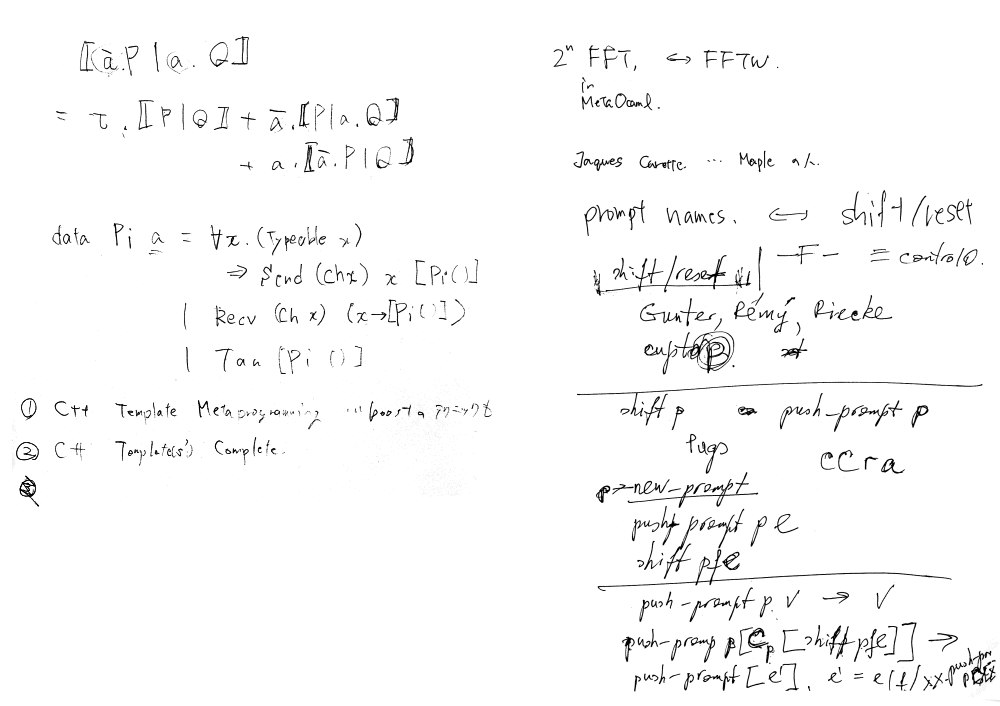 ⟦ā.P | a.Q⟧
= τ.⟦P|Q⟧ + ā.⟦P|a.Q⟧
+ a.⟦ā.P|Q⟧
data Pi a = ∀x.(Typeable x)
⇒ Send (Ch x) x [Pi()]
| Recv (Ch x) (x→[Pi()])
| Tau [Pi ()]
① C++ Template Metaprogramming … boost の テクニックも
② C++ Template(s') Complete.
③
2ⁿ FFT, ↔ FFTW.
in
MetaOcaml.
Jaques Carette. … Maple の人.
prompt names. ↔ shift/reset
shift/reset | -F- ≡ control0.
Gunter, Rémy, Riecke
cupto P.
shift p push-prompt p
Pugs
CCra
p → new-prompt
push prompt p e
shift p f e
push-prompt p. v → v
push-promp p[Cp[shift p f e]] →
push-prompt [e'], e' = e[f/λx.push-pr